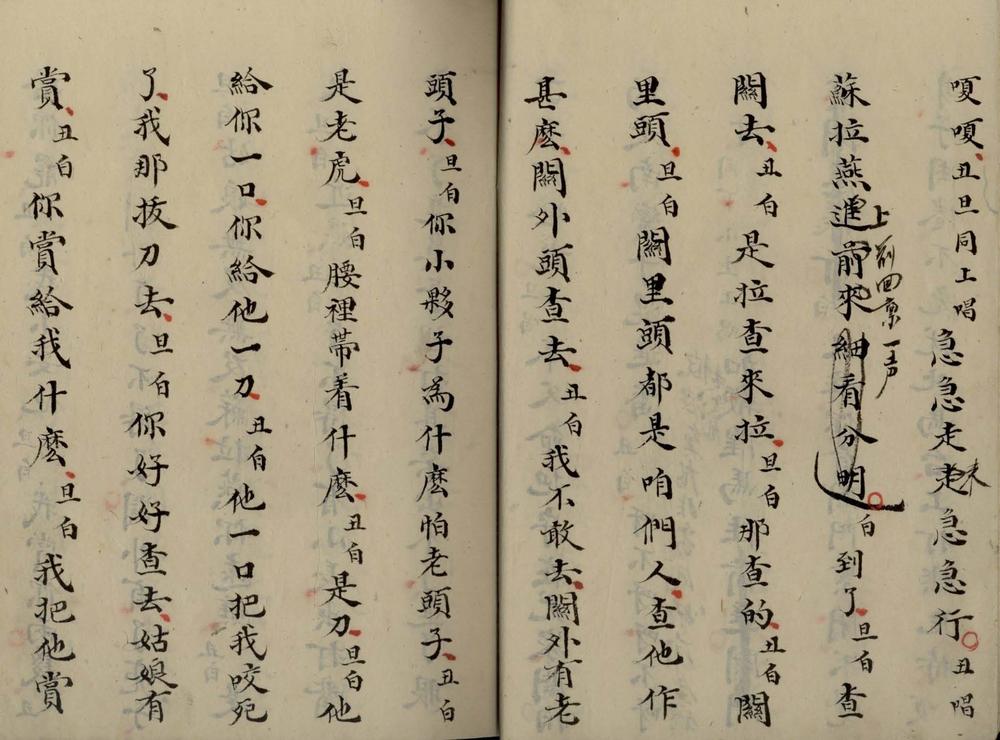 嗄嗄丑旦同上唱急急走走急急行丑唱
來
蘇拉燕進前來細看分明白到了旦白查
上前回稟一声
關去丑白是拉查來拉旦白那查的丑白關
里頭旦白關里頭都是咱們人查他作
甚麽關外頭查去丑白我不敢去關外有老
頭子旦白你小夥子爲什麽怕老頭子丑白
是老虎旦白腰裡帶着什麽丑白是刀旦白他
給你一口你給他一刀丑白他一口把我咬死
了我那拔刀去旦白你好好查去姑娘有
賞丑白你賞給我什麽旦白我把他賞